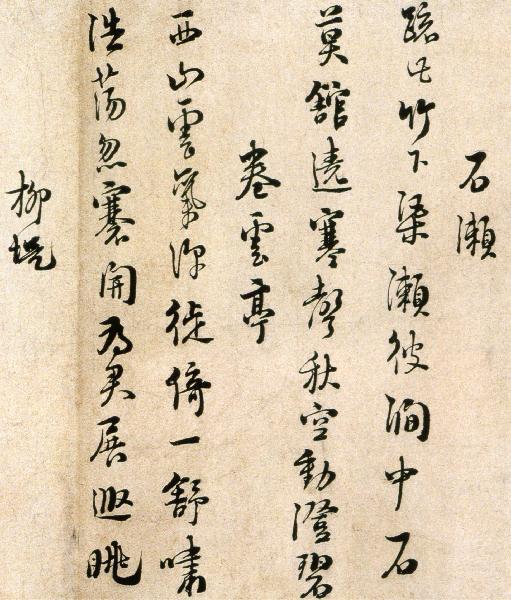 石瀨
疏此竹下渠瀨彼澗中石
莫館遶寒聲秋空動澄碧
卷雲亭
西山雲氣深徙倚一舒嘯
浩蕩忽褰開為君展遐眺
柳堤